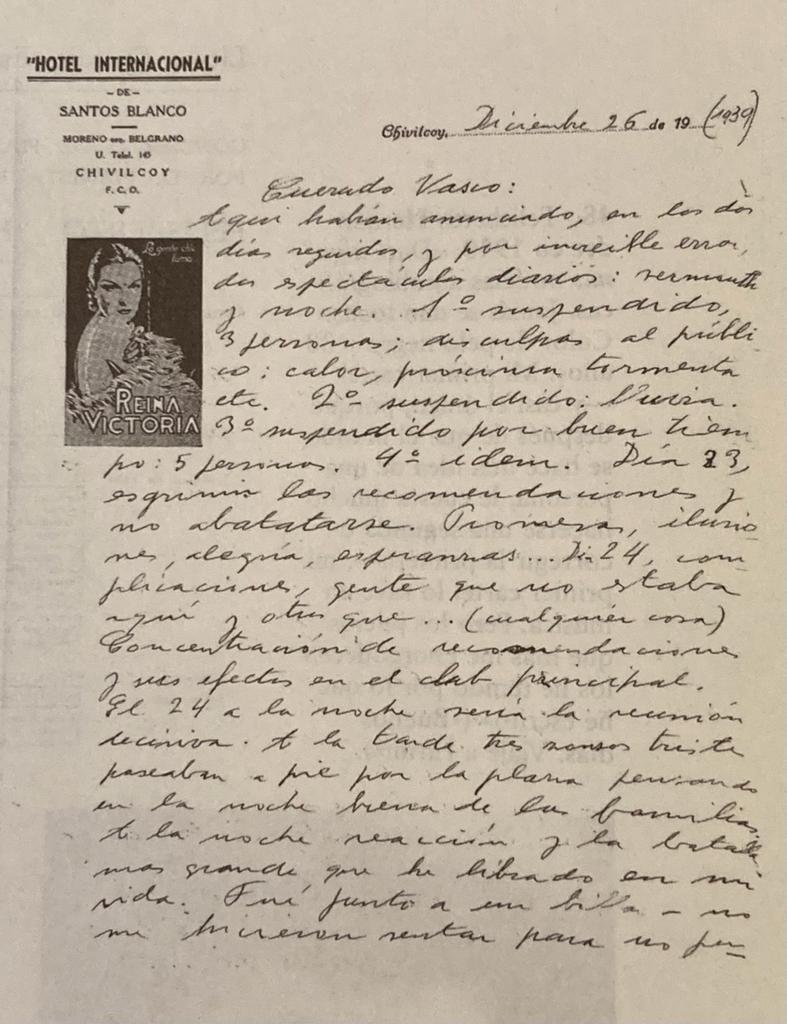 "HOTEL INTERNACIONAL"
– DE –
SANTOS BLANCO
MORENO esq. BELGRANO
U. Telef. 145
CHIVILCOY
F. C. O.
Chivilcoy, Diciembre 26 de 19 (1939)
La gente chic fuma
REINA
VICTORIA
Querado Vasco:
Aquí habían anunciado, en los dos
días seguidos, y por increible error,
dos espectáculos diarios: vermouth
y noche. 1º suspendido,
3 personas; disculpas al públi
co: calor, próxima tormenta
etc. 2º suspendido: lluvia.
3º suspendido por buen tiem
po: 5 personas. 4º idem. Día 23,
esgrimir las recomendaciones y
no abatatarse. Promesas, ilusio
nes, alegría, esperanzas... Día 24, com
plicaciones, gente que no estaba
aquí y otros que... (cualquier cosa)
Concentración de recomendaciones
y sus efectos en el club principal.
El 24 a la noche sería la reunión
decisiva. A la tarde tres sonsos tristes
paseaban a pie por la plaza pensando
en la noche buena de las familias.
A la noche reacción y la batalla
mas grande que he librado en mi
vida. Fué junto a un billar – no
me hicieron sentar para no per–